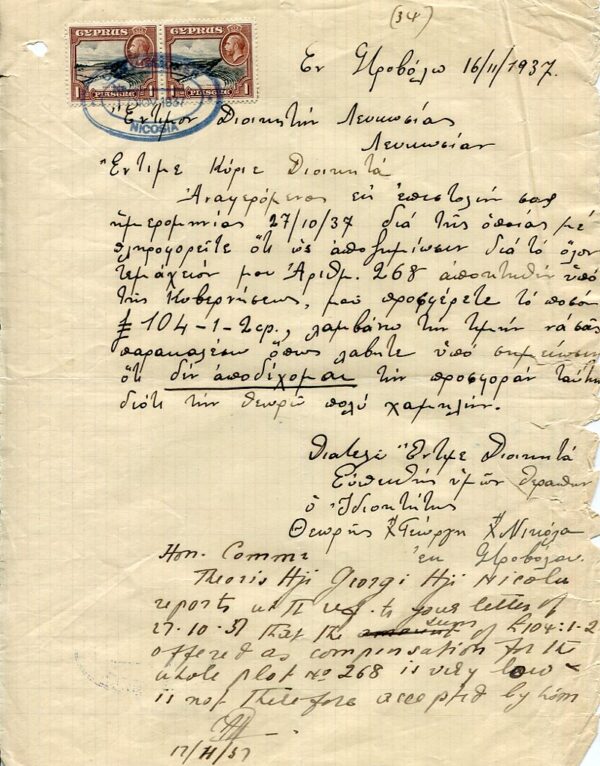 (34)
CYPRUS CYPRUS
1 PIASTRE 1 1 PIASTRE 1
NOV 1937
NICOSIA
Ἐν Στροβόλῳ 16/11/1937.
Ἔντιμον Διοικητὴν Λευκωσίας
Λευκωσίαν
Ἔντιμε Κύριε Διοικητά
Ἀναφερόμενος εἰς ἐπιστολήν σας
ἡμερομηνίας 27/10/37 διά τῆς ὁποίας μέ
πληροφορεῖτε ὅτι ὡς ἀποζημίωσιν διά τό ὅλον
τεμάχειόν μου Ἀριθμ. 268 ἀποκτηθέν ὑπό
τῆς Κυβερνήσεως, μου προσφέρετε τό ποσόν
£ 104-1-2γρ., λαμβάνω τήν τιμήν νά σᾶς
παρακαλέσω ὅπως λάβητε ὑπό σημείωσιν
ὅτι δέν ἀποδέχομαι τήν προσφοράν ταύτην
διότι τήν θεωρῶ πολύ χαμηλήν.
Διατελῶ Ἔντιμε Διοικητά
Εὐπειθής ὑμῶν θεράπων
ὁ Ἰδιοκτήτης
Θεωρῆς Χ"Γεώργη Χ"Νικόλα
ἐκ Στροβόλου.
Hon. Commr
Theoris Hji Georgi Hji Nicola
reports with ref. to your letter of
27.10.37 that the sum of £104:1-2
offered as compensation for the
whole plot No 268 is very low
is not therefore accepted by him
17/11/37